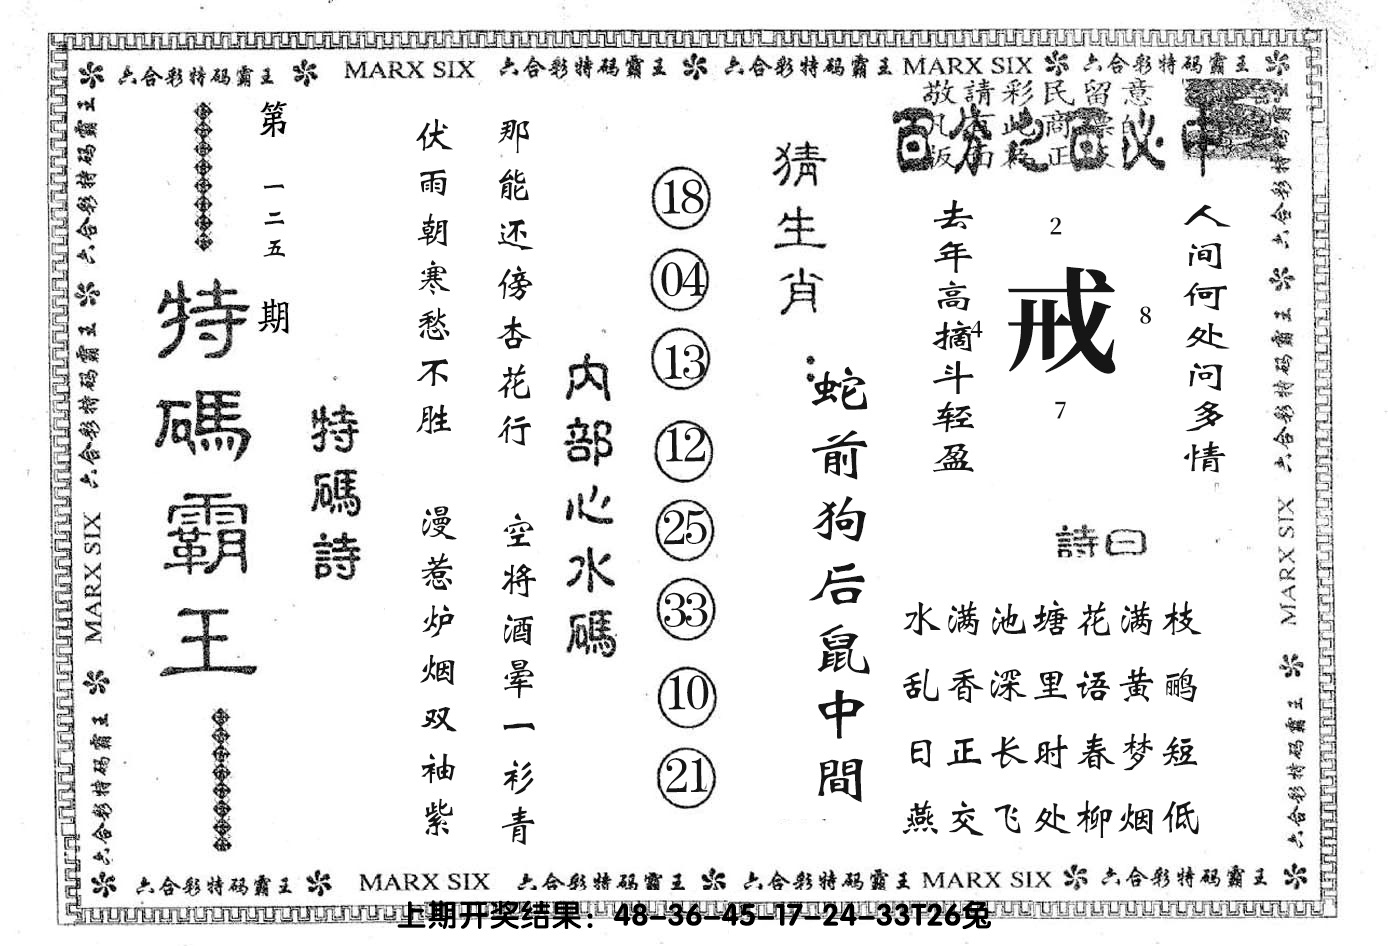 六合彩特码霸王 MARX SIX 六合彩特码霸王 六合彩特码霸王 MARX SIX 六合彩特码霸王
敬請彩民留意
百分之百必中
人间何处问多情
去年高摘斗轻盈
2
4
戒
8
7
詩曰
水满池塘花满枝
乱香深里语黄鹂
日正长时春梦短
燕交飞处柳烟低
猜生肖：
蛇前狗后鼠中間
18
04
13
12
25
33
10
21
内部心水碼
那能还傍杏花行 空将酒晕一衫青
伏雨朝寒愁不胜 漫惹炉烟双袖紫
特碼詩
第一二五期
特碼霸王
六合彩特码霸王 六合彩特码霸王 MARX SIX 六合彩特码霸王
六合彩特码霸王 六合彩特码霸王 MARX SIX 六合彩特码霸王
六合彩特码霸王 MARX SIX 六合彩特码霸王 六合彩特码霸王 MARX SIX 六合彩特码霸王
上期开奖结果：48-36-45-17-24-33T26兔